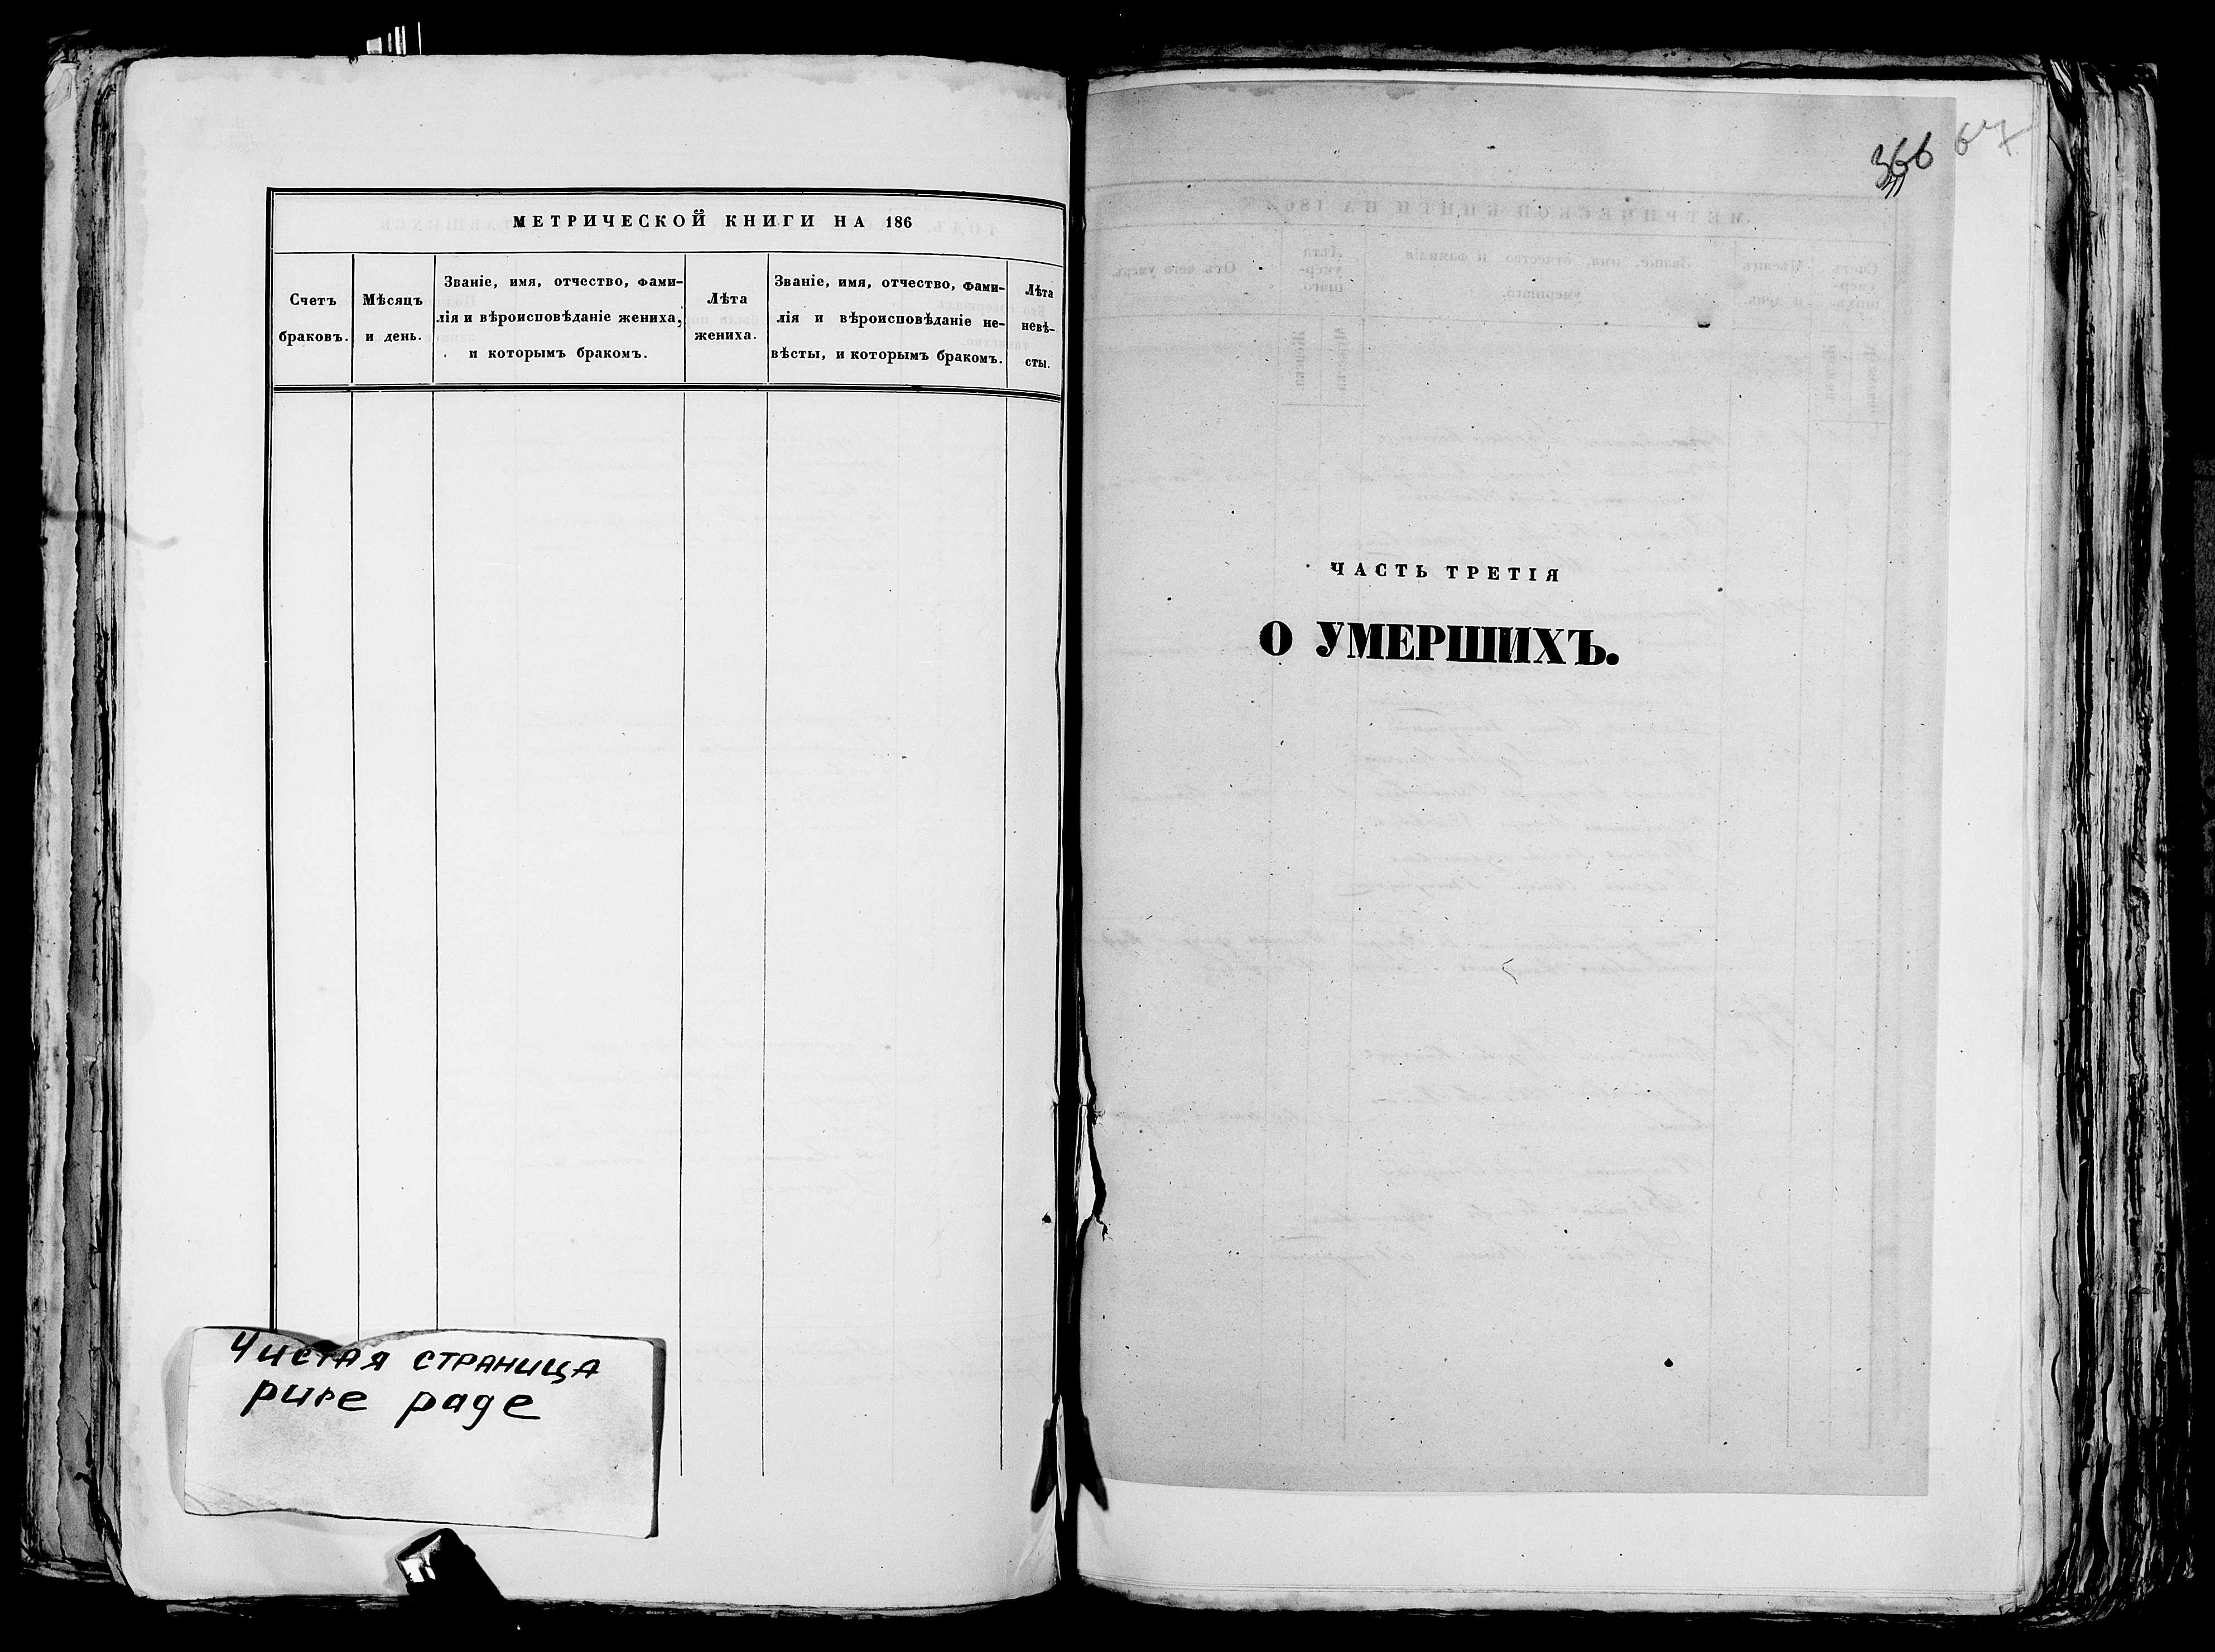 МЕТРИЧЕСКОЙ КНИГИ НА 186
Счетъ
браковъ.
Мѣсяцъ
и день.
Званіе, имя, отчество, фами-
лія и вѣроисповѣданіе жениха,
и которымъ бракомъ.
Лѣта
жениха.
Званіе, имя, отчество, фами-
лія и вѣроисповѣданіе не-
вѣсты, и которымъ бракомъ.
Лѣта
невѣ-
сты.
Чистая страница
pure page
366 67
ЧАСТЬ ТРЕТІЯ
О УМЕРШИХЪ.